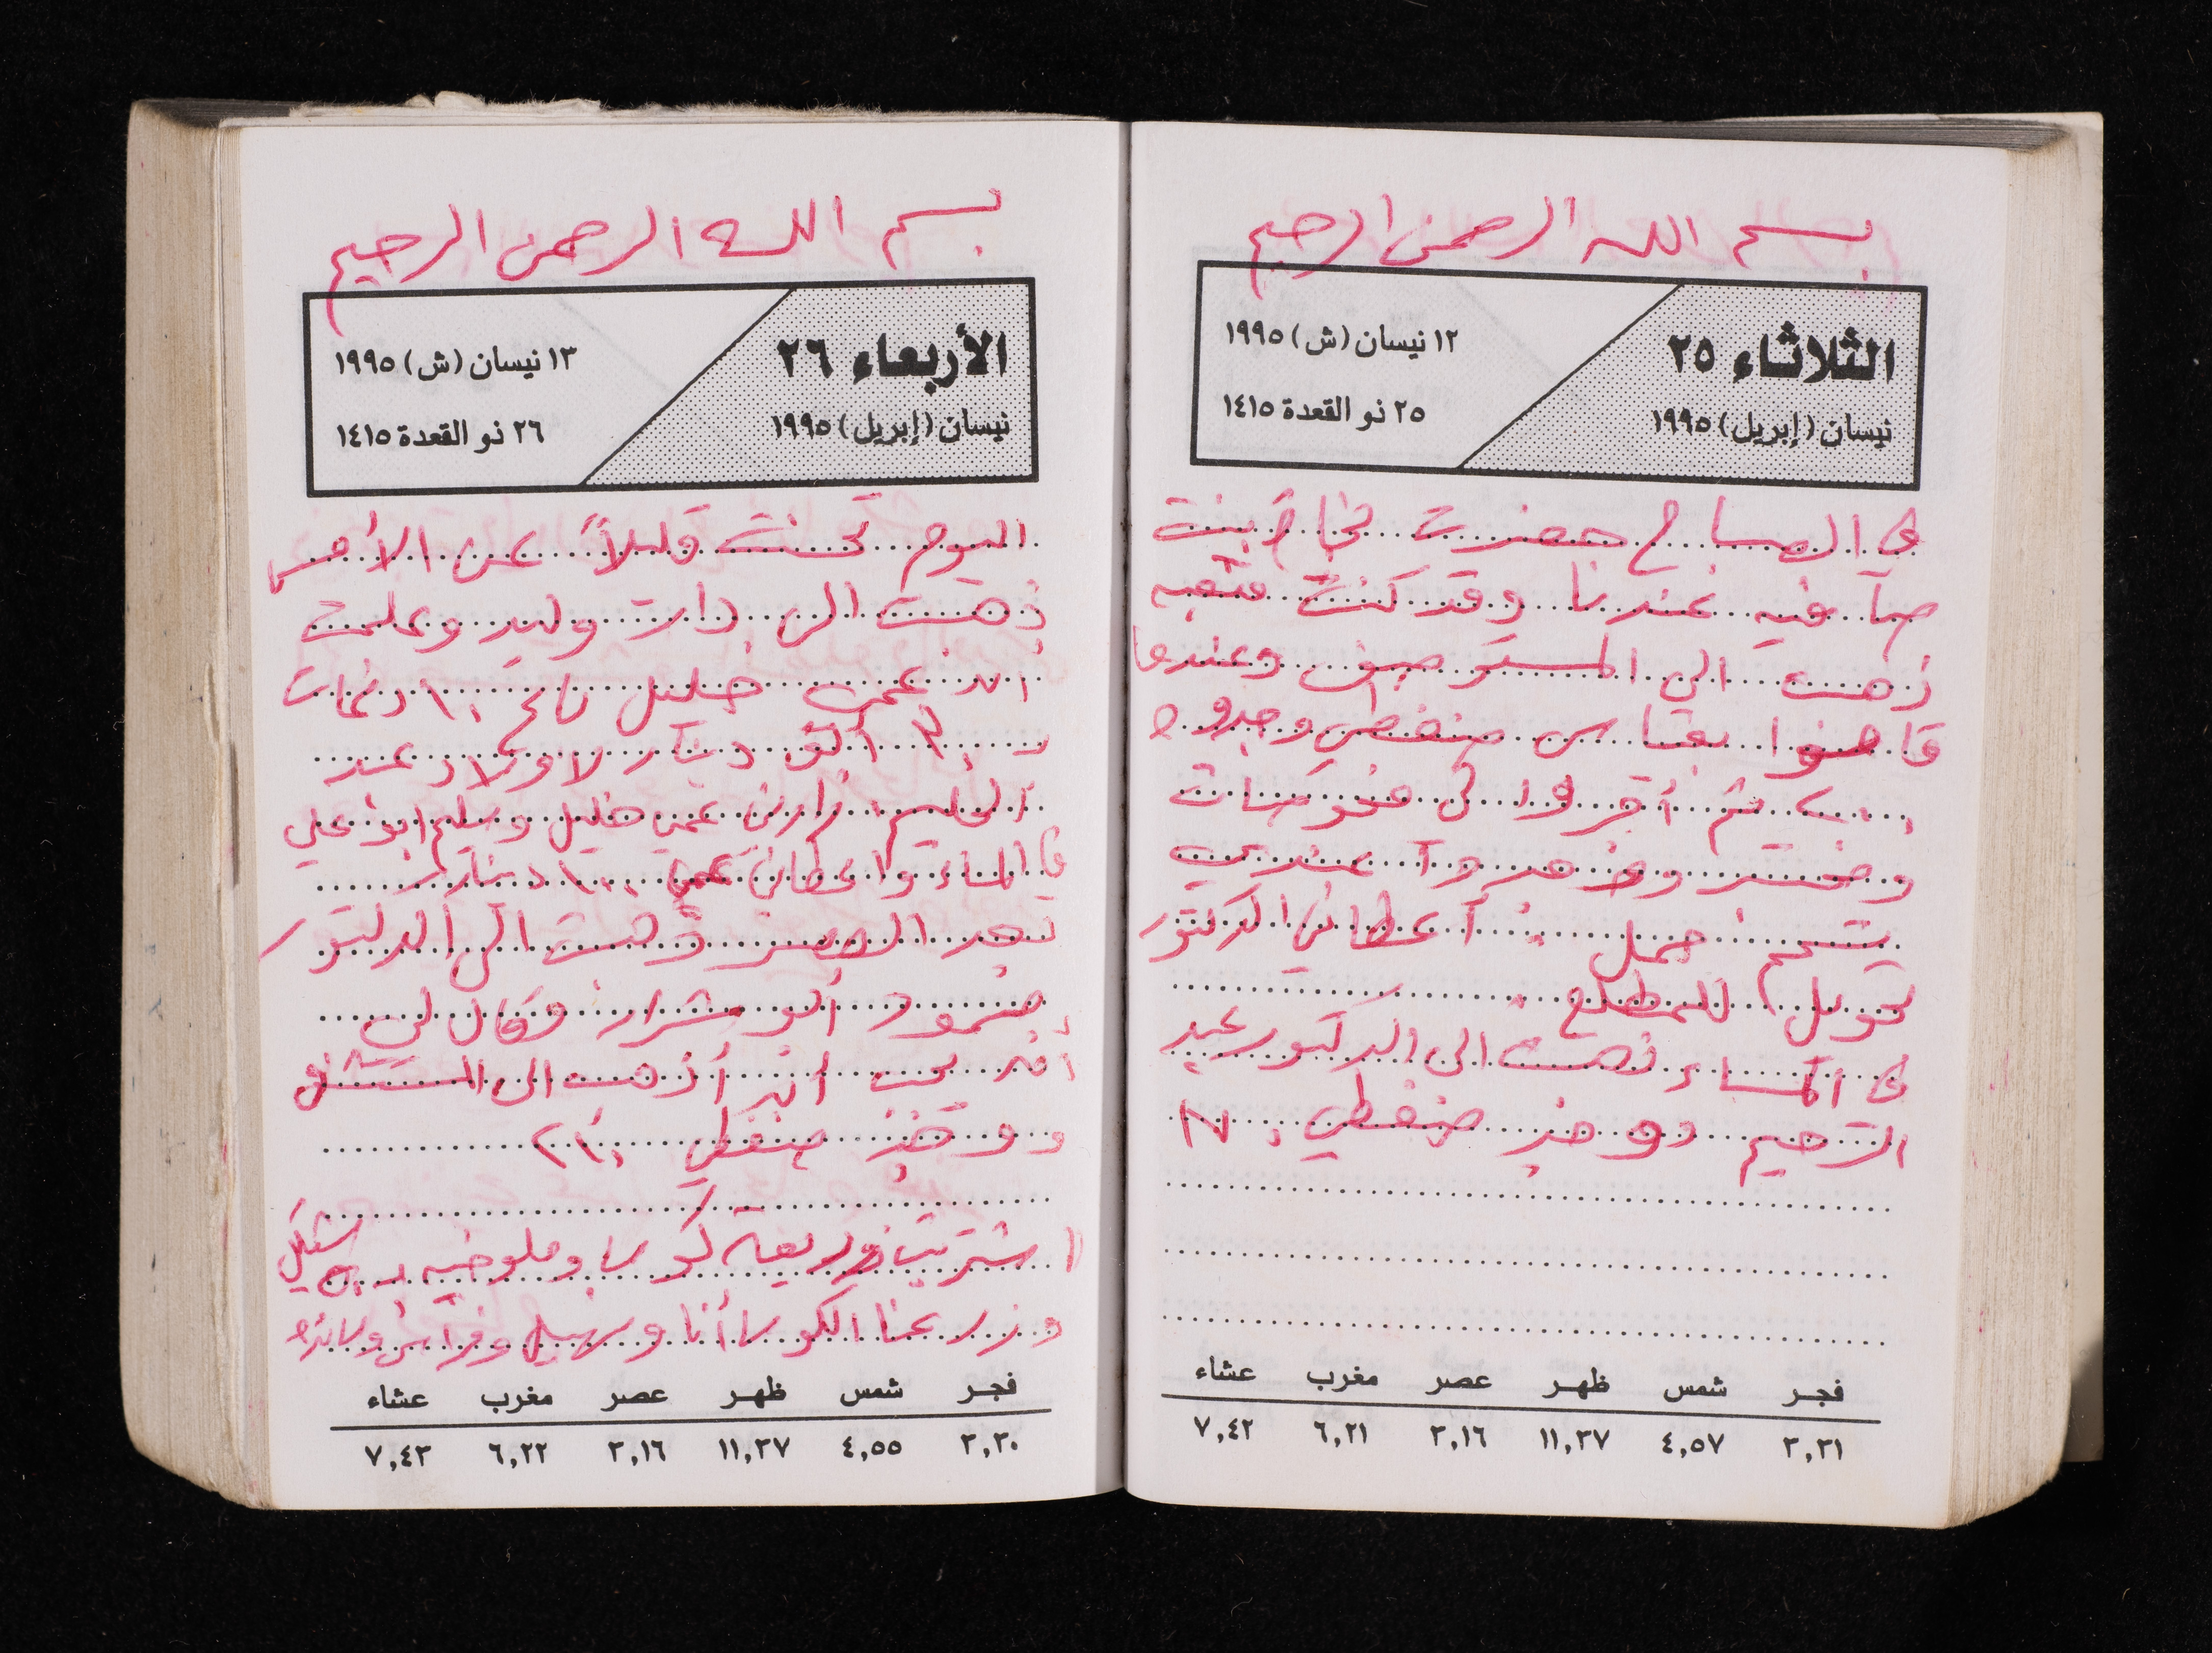 بسم الله الرحمن الرحيم
الثلاثاء ٢٥
نيسان (إبريل) ١٩٩٥
١٢ نيسان (ش) ١٩٩٥
٢٥ ذو القعدة ١٤١٥
في الصباح حضرت نجاح بنت
صافيه عندنا وقد كنت متعبه
ذهبت الى المستوصف وعندما
قاموا بقياس ضغطي وجدوه
ثم أقروا لي فحوصات
عندي
أعطاني الدكتور
تحويل للمطلع
في المساء ذهبت الى الدكتور عبد
الرحيم ووجد ضغطي ١٧٠
فجر شمس ظهر عصر مغرب عشاء
٣,٣١ ٤,٥٧ ١١,٣٧ ٣,١٦ ٦,٢١ ٧,٤٢
بسم الله الرحمن الرحيم
الأربعاء ٢٦
نيسان (إبريل) ١٩٩٥
١٣ نيسان (ش) ١٩٩٥
٢٦ ذو القعدة ١٤١٥
اليوم تحسنت قليلاً عن الأمس
ذهبت الى دارت وليد وعلمت
ان عمي خليل باع ١٠ دنمات
ب ٣٠ ألف دينار لاولاد عبد
الحليم زارني عمي خليل وسليم ابو علي
في المساء واعطاني عمي ١٠٠ دينار
بعد العصر ذهبت الى الدكتور
محمود أبو شرار وقال لي
أنه يجب ان أذهب الى المستشفى
ووجد ضغطي ٢١٠
اشتريت زريعة كوسا وملوخيه ب ٥٠ شيكل
وزرعنا الكوسا أنا وسهيل وفراس ولانا
فجر شمس ظهر عصر مغرب عشاء
٣,٣٠ ٤,٥٥ ١١,٣٧ ٣,١٦ ٦,٢٢ ٧,٤٣